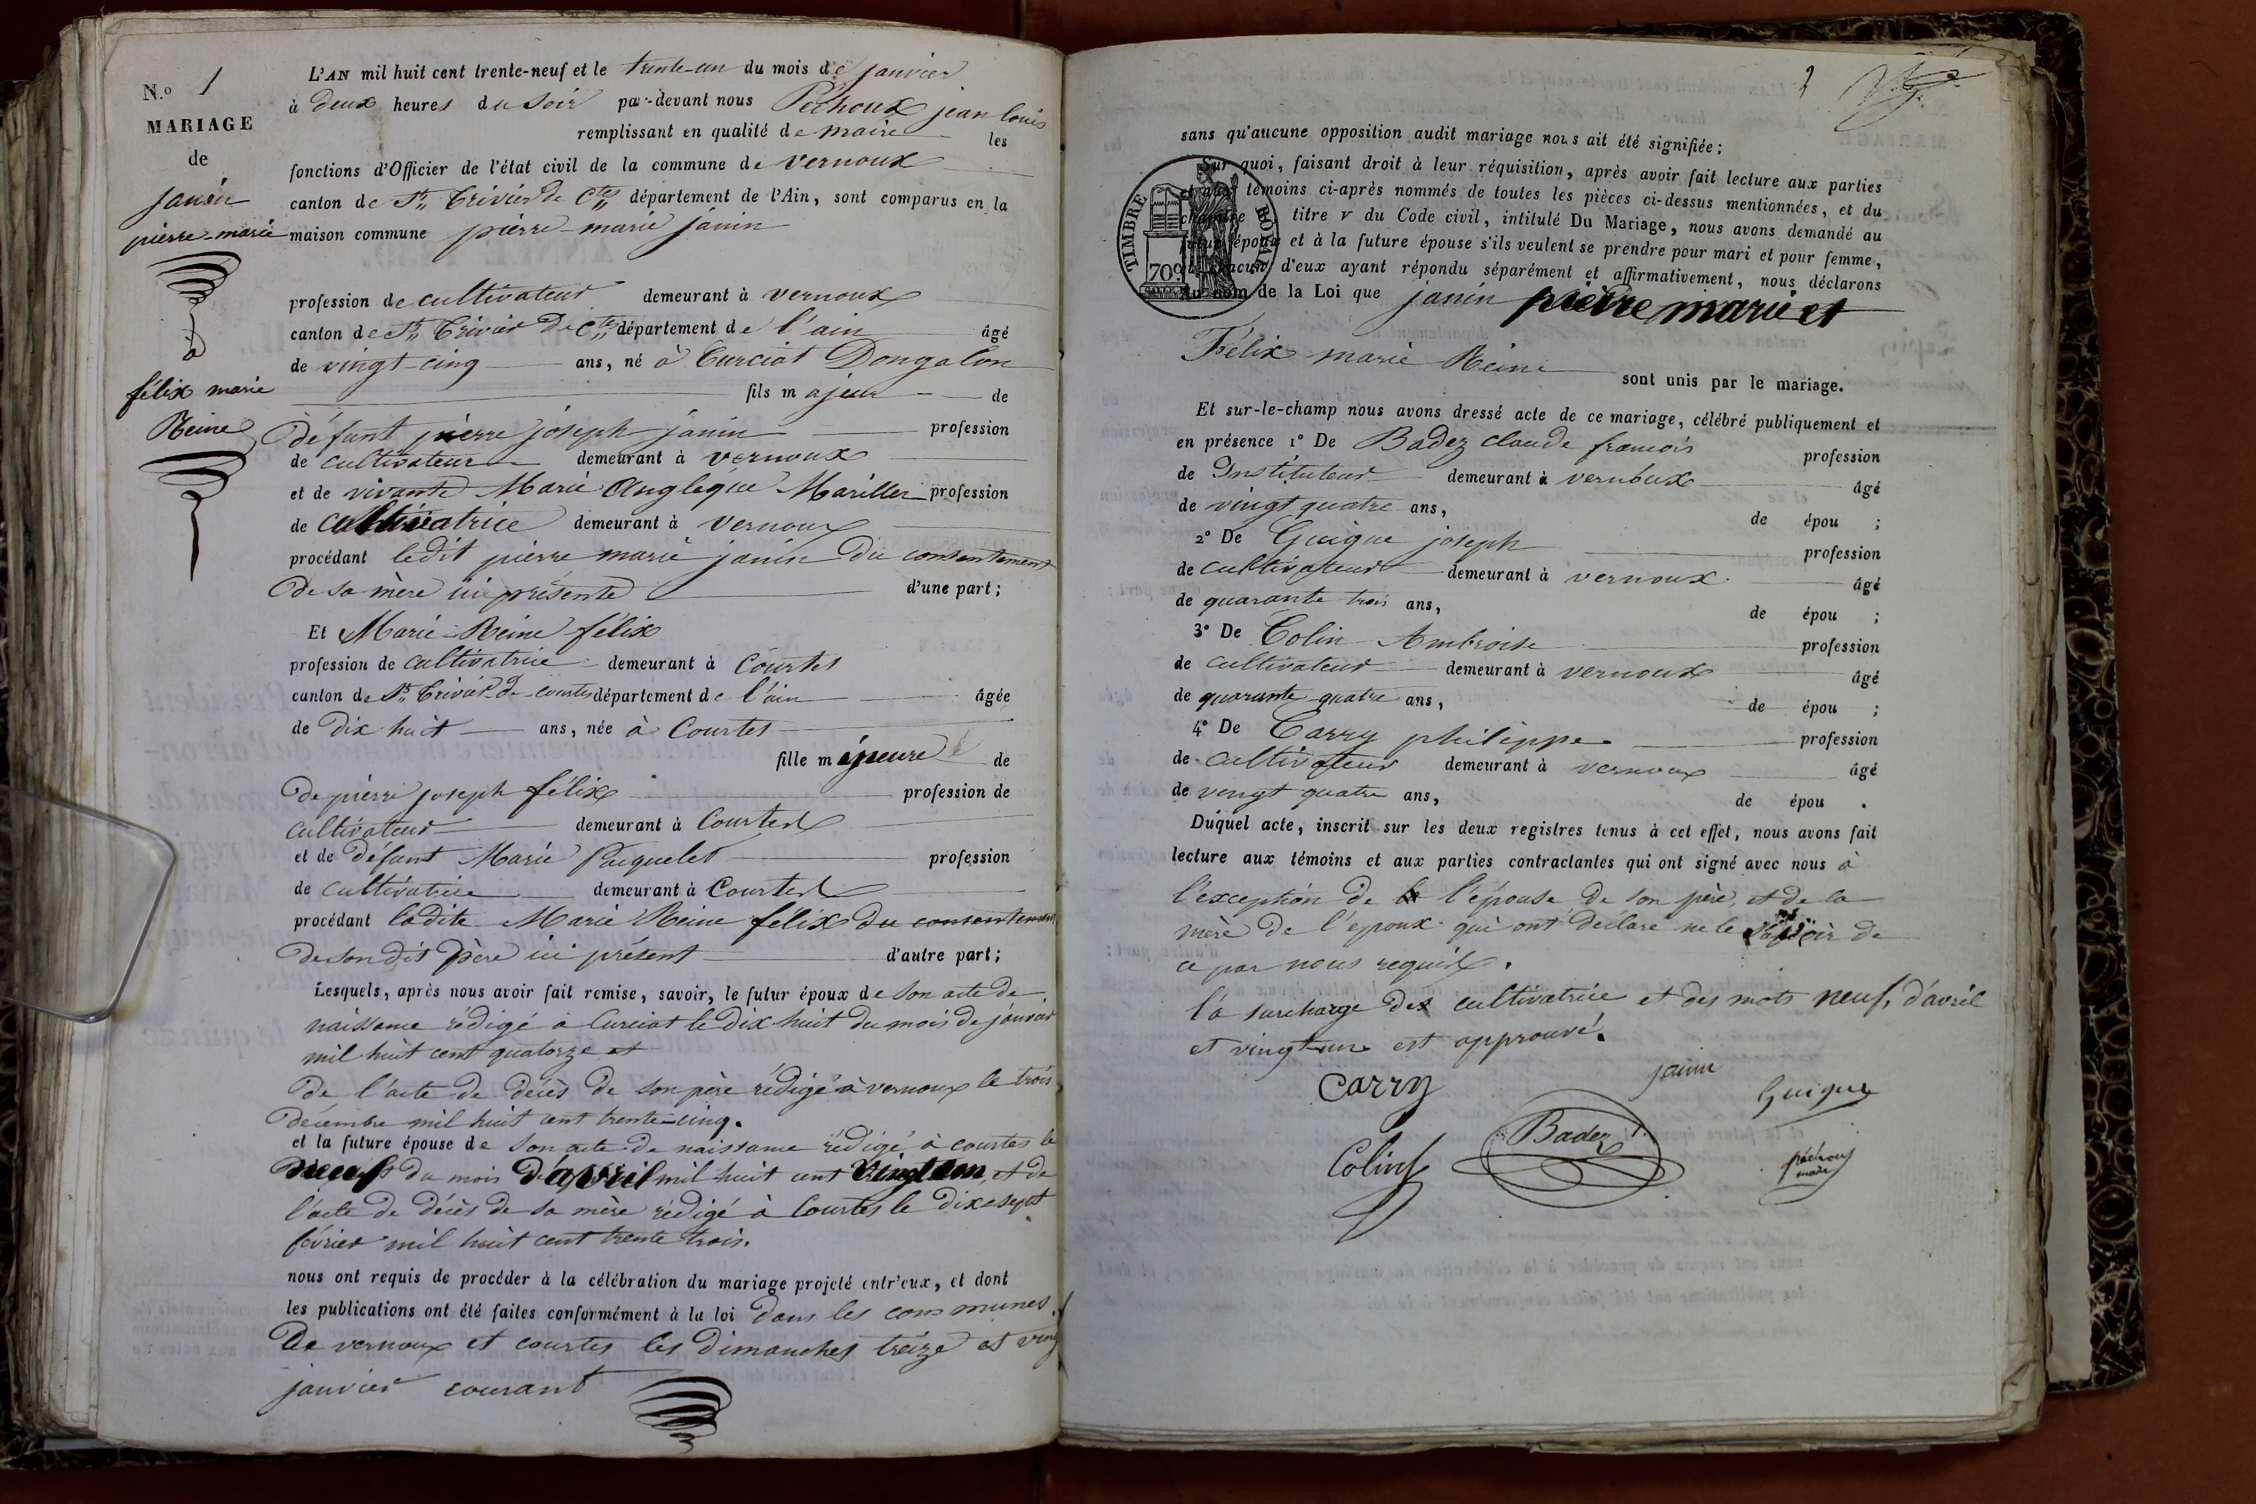 N.o 1
MARIAGE
de
janin
pierre-marie
à
félix marie
Reine
L'AN mil huit cent trente-neuf et le trente-un du mois de janvier
à deux heures du soir par-devant nous Péchoux jean louis
remplissant en qualité de maire les
fonctions d'Officier de l'état civil de la commune de vernoux
canton de St Trivier de Ctes département de l'Ain, sont comparus en la
maison commune pierre-marie janin
profession de cultivateur demeurant à vernoux
canton de St Trivier de Ctes département de l'ain âgé
de vingt-cinq ans, né à Curciat Dongalon
fils majeur de
défunt pierre joseph janin profession
de cultivateur demeurant à vernoux
et de vivante Marie Angleque Mariller profession
de cultivatrice demeurant à vernoux
procédant ledit pierre marie janin du consentement
de sa mère ici présente d'une part;
Et Marie-Reine félix
profession de cultivatrice demeurant à Courtes
canton de St Trivier de courtes département de l'ain âgée
de dix huit ans, née à Courtes
fille mineure de
de pierre joseph félix profession de
cultivateur demeurant à Courtes
et de défunt Marie Paquelet profession
de cultivatrice demeurant à Courtes
procédant ladite Marie Reine felix du consentement
de son dit père ici présent d'autre part;
Lesquels, après nous avoir fait remise, savoir, le futur époux de son acte de
naissance rédigé à Curciat le dix huit du mois de janvier
mil huit cent quatorze et
de l'acte de décès de son père rédigé à vernoux le trois
décembre mil huit cent trente-cinq.
et la future épouse de son acte de naissance rédigé à courtes le
neuf du mois d'avril mil huit cent vingt un, et de
l'acte de décès de sa mère rédigé à Courtes le dix sept
février mil huit cent trente trois.
nous ont requis de procéder à la célébration du mariage projeté entr'eux, et dont
les publications ont été faites conformément à la loi dans les communes
de vernoux et courtes les dimanches treize et vingt
janvier courant
2
sans qu'aucune opposition audit mariage nous ait été signifiée;
Sur quoi, faisant droit à leur réquisition, après avoir fait lecture aux parties
et aux témoins ci-après nommés de toutes les pièces ci-dessus mentionnées, et du
chapitre titre V du Code civil, intitulé Du Mariage, nous avons demandé au
futur époux et à la future épouse s'ils veulent se prendre pour mari et pour femme,
et chacun d'eux ayant répondu séparément et affirmativement, nous déclarons
Au nom de la Loi que janin pierre marie et
TIMBRE ROYAL
70c
Félix marie Reine
sont unis par le mariage.
Et sur-le-champ nous avons dressé acte de ce mariage, célébré publiquement et
en présence 1° De Badez claude francois profession
de Instituteur demeurant à vernoux âgé
de vingt quatre ans, de épou ;
2° De Guigue joseph profession
de cultivateur demeurant à vernoux âgé
de quarante trois ans, de épou ;
3° De Colin Ambroise profession
de cultivateur demeurant à vernoux âgé
de quarante quatre ans, de épou ;
4° De Carry philippe profession
de cultivateur demeurant à vernoux âgé
de vengt quatre ans, de épou .
Duquel acte, inscrit sur les deux registres tenus à cet effet, nous avons fait
lecture aux témoins et aux parties contractantes qui ont signé avec nous à
l'exception de l'épouse de son père, et de la
mère de l'époux qui ont déclaré ne le savoir de
ce par nous requis.
la surcharge des cultivatrice et des mots neuf, d'avril
et vingt-un est approuvé.
Carry
janin
Guigue
Colin
Badez
péchoux
maire